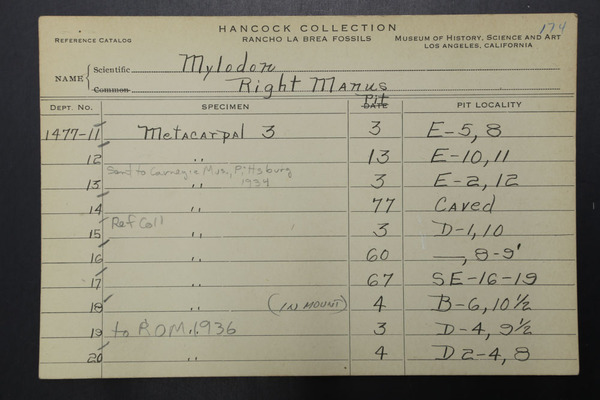 174
HANCOCK COLLECTION
REFERENCE CATALOG RANCHO LA BREA FOSSILS MUSEUM OF HISTORY, SCIENCE AND ART
LOS ANGELES, CALIFORNIA
NAME { Scientific Mylodon
Common Right Manus
DEPT. NO. SPECIMEN DATE Pit PIT LOCALITY
1477-11 Metacarpal 3 3 E-5, 8
12 " 13 E-10, 11
Send to Carnegie Mus., Pittsburg
13 " 1934 3 E-2, 12
14 " 77 Caved
Ref Coll
15 " 3 D-1, 10
16 " 60 —, 8-9'
17 " 67 SE-16-19
18 " (IN MOUNT) 4 B-6, 10½
19 to R.O.M. 1936 " 3 D-4, 9½
20 " 4 D2-4, 8